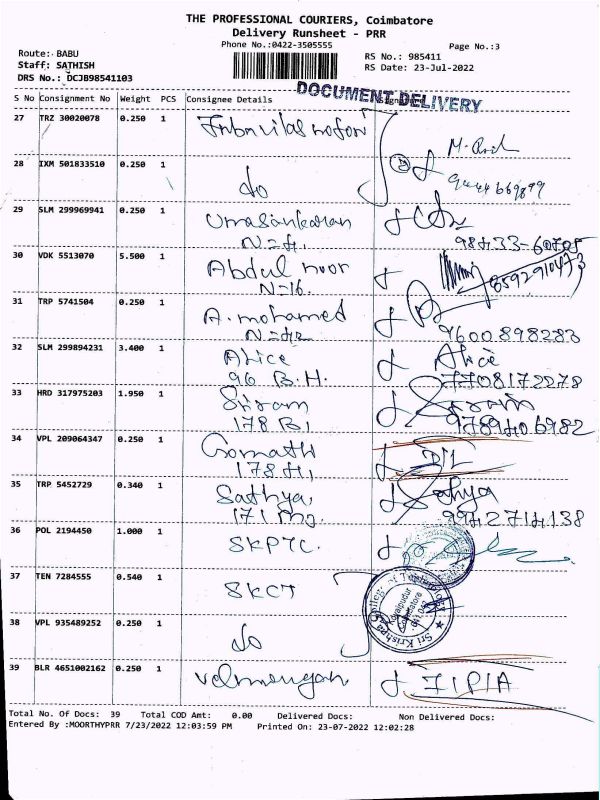 THE PROFESSIONAL COURIERS, Coimbatore
Delivery Runsheet - PRR
Phone No.:0422-3505555
Page No.:3
Route: BABU
Staff: SATHISH
DRS No.: DCJB98541103
RS No.: 985411
RS Date: 23-Jul-2022
DOCUMENT DELIVERY
S No Consignment No Weight PCS Consignee Details
27 TRZ 30020078 0.250 1
28 IXM 501833510 0.250 1 do
9444669899
29 SLM 299969941 0.250 1 Umasankaran
N=4. 98433-60705
30 VDK 5513070 5.500 1 Abdul noor
N=16. 8592910473
31 TRP 5741504 0.250 1 A. mohamed
N=42 9600898283
32 SLM 299894231 3.400 1 Alice Alice
96 B.H. 7708172278
33 HRD 317975203 1.950 1 Sriram Sriram
178 B1 9789406982
34 VPL 209064347 0.250 1 Gomathi D/L
178 H1
35 TRP 5452729 0.340 1 Sathya, Sathya
171 9942714138
36 POL 2194450 1.000 1 SKPTC.
37 TEN 7284555 0.540 1 SKCT
Sri Krishna College of Technology
Kovaipudur
Coimbatore
641 042
38 VPL 935489252 0.250 1 do
39 BLR 4651002162 0.250 1 Velmurugan
Total No. Of Docs: 39 Total COD Amt: 0.00 Delivered Docs: Non Delivered Docs:
Entered By :MOORTHYPRR 7/23/2022 12:03:59 PM Printed On: 23-07-2022 12:02:28